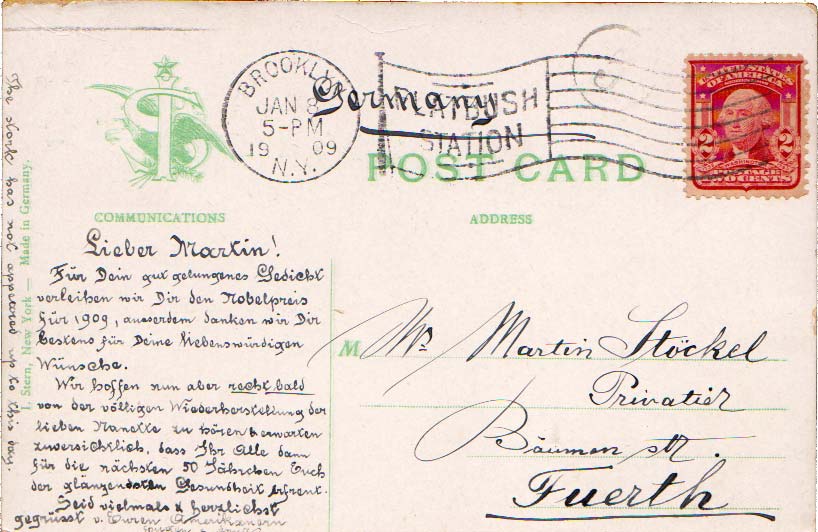 BROOKLYN
JAN 8
5-PM
19 09
N.Y.
Germany
FLATBUSH
STATION
UNITED STATES
OF AMERICA
2 2
WASHINGTON
POSTAGE
TWO CENTS
POST CARD
COMMUNICATIONS
ADDRESS
Lieber Martin!
Für Dein gut gelungenes Gedicht
verleihen wir Dir den Nobelpreis
für 1909, ausserdem danken wir Dir
bestens für Deine liebenswürdigen
Wünsche.
Wir hoffen nun aber recht bald
von der völligen Wiederherstellung der
lieben Nanette zu hören & erwarten
zuversichtlich, dass Ihr Alle dann
für die nächsten 50 Jährchen Euch
der glänzendsten Gesundheit erfreut.
Seid vielmals & herzlichst
gegrüsst v. Euren Amerikanern
The stork has not appeared up to this day.
I. Stern, New York — Made in Germany.
M Mr. Martin Stöckel
Privatier
Bäumen str.
Fuerth